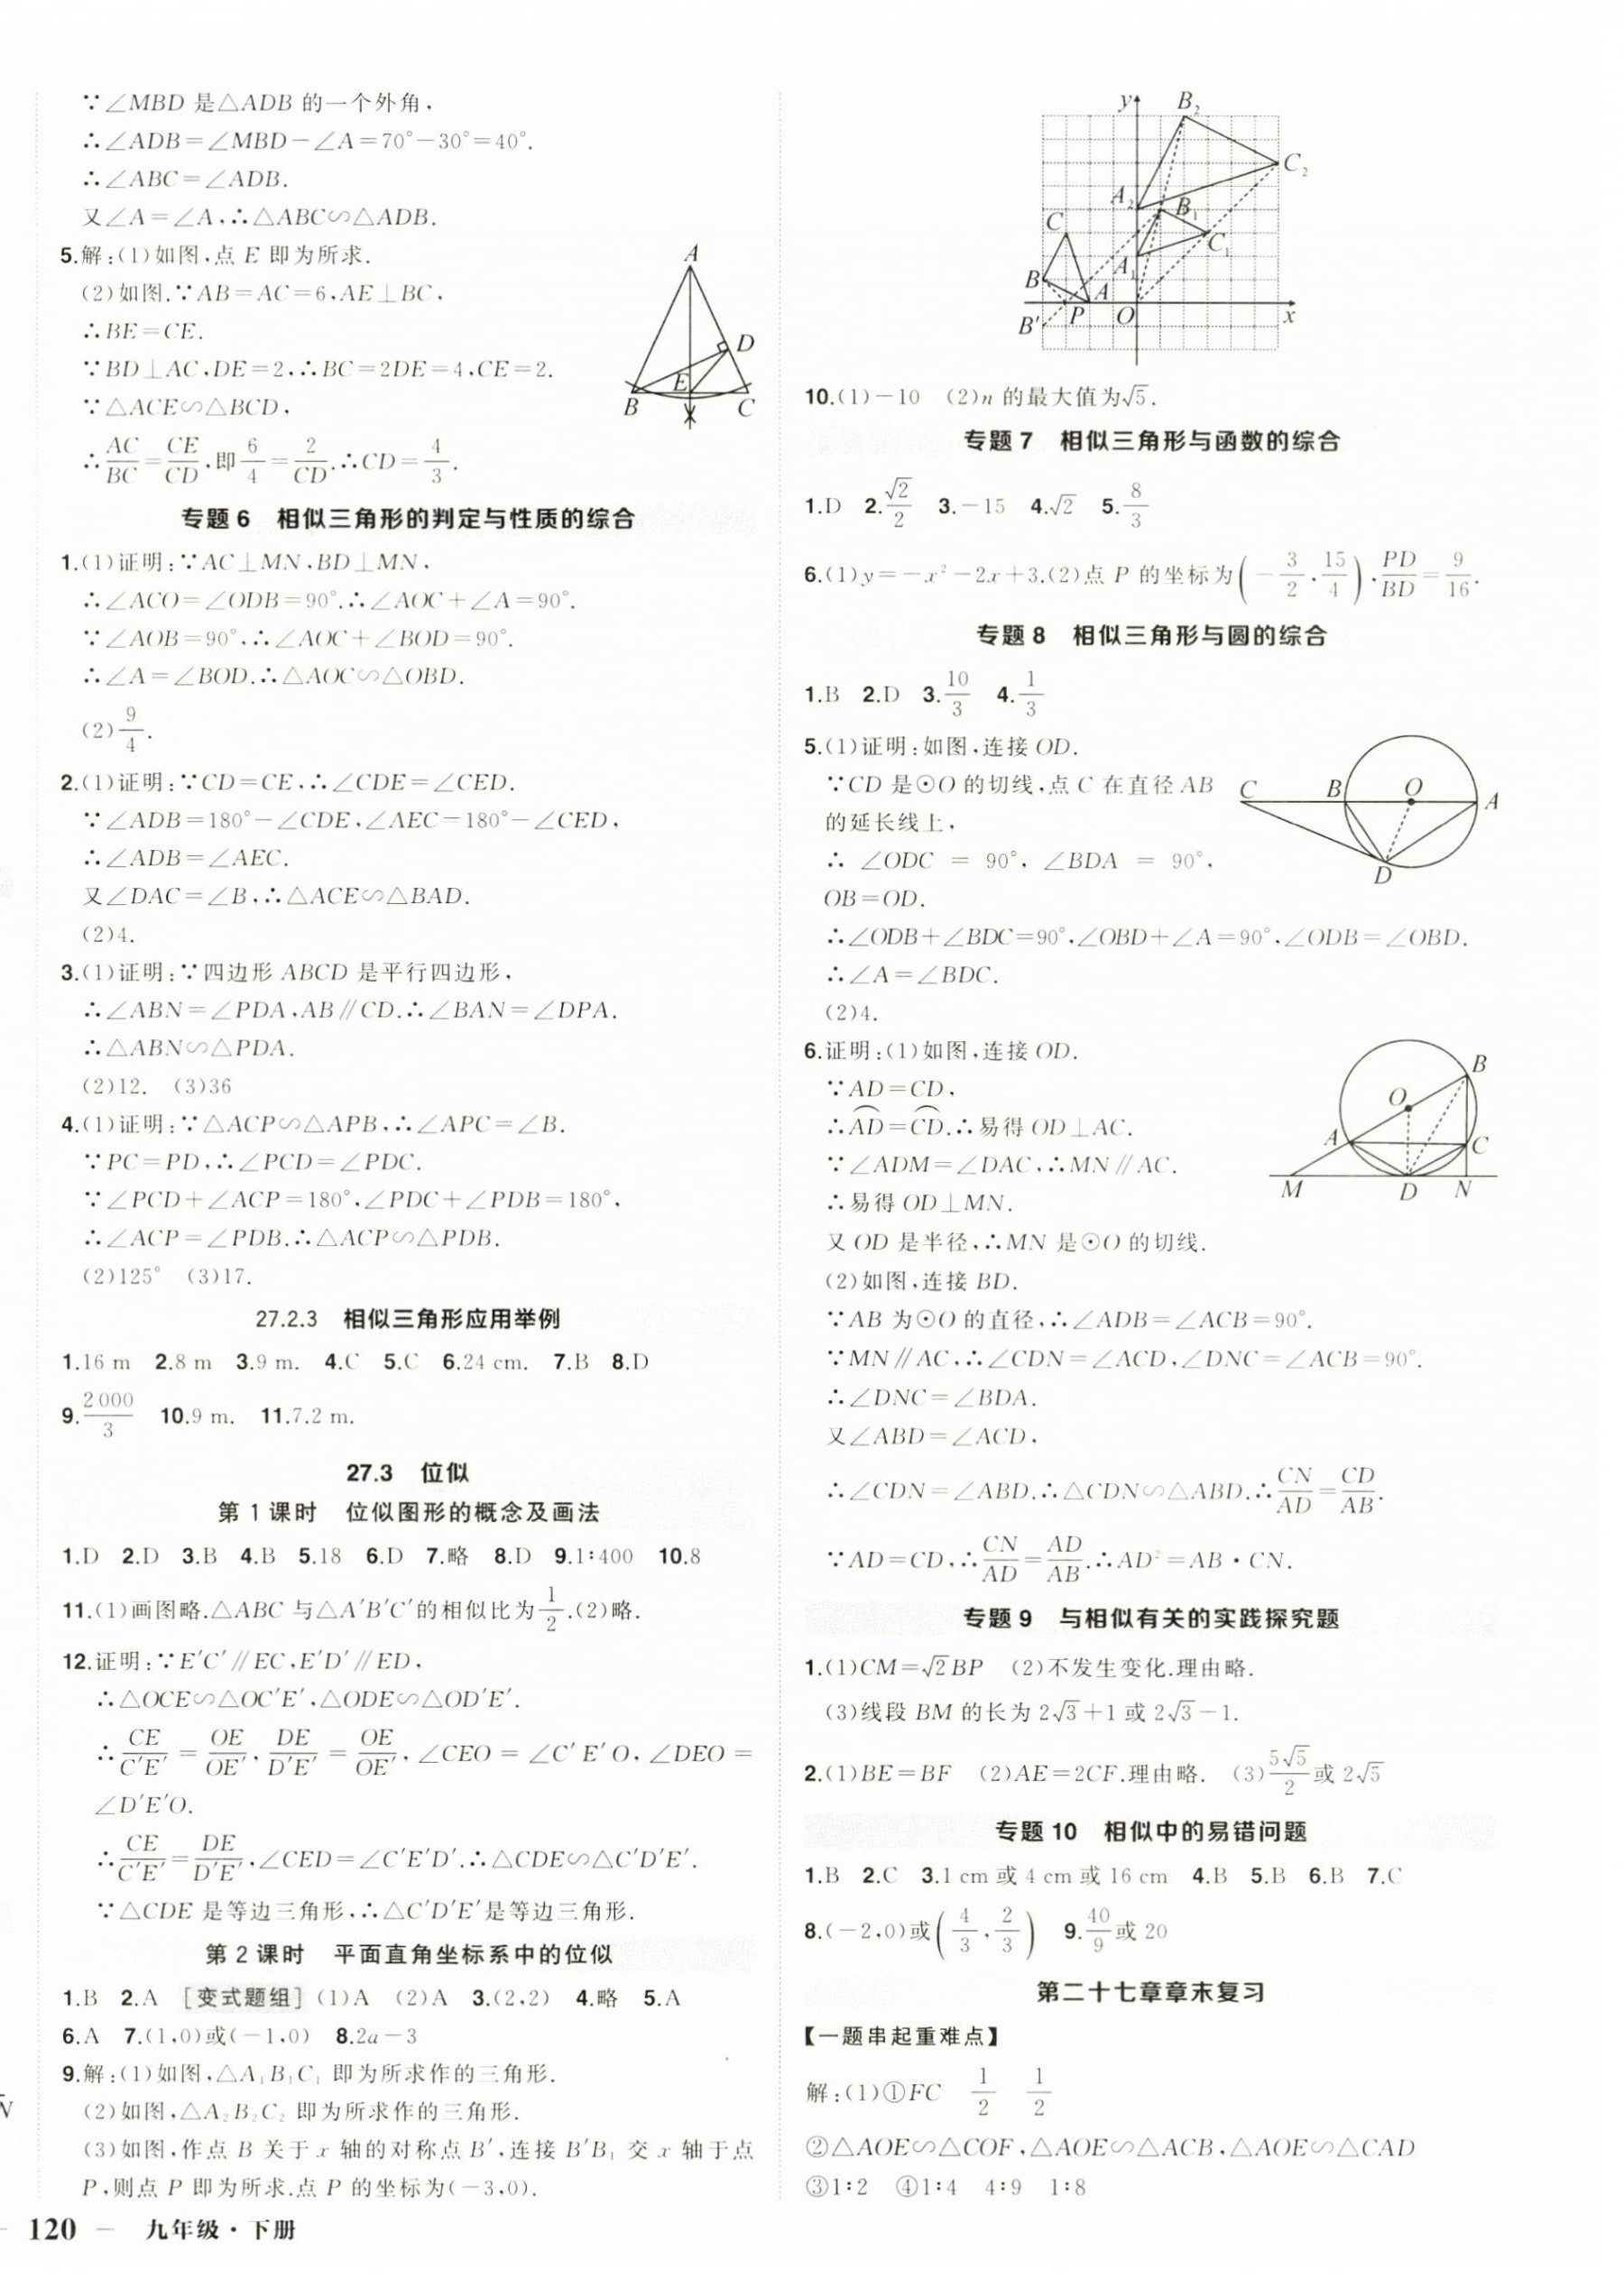 ∵∠MBD 是△ADB 的一个外角,
∴∠ADB=∠MBD-∠A=70°-30°=40°.
∴∠ABC=∠ADB.
又∠A=∠A,∴△ABC∽△ADB.
5.解:(1)如图,点 E 即为所求.
(2)如图.∵AB=AC=6,AE⊥BC,
∴BE=CE.
∵BD⊥AC,DE=2,∴BC=2DE=4,CE=2.
∵△ACE∽△BCD,
∴AC/BC=CE/CD,即6/4=2/CD.∴CD=4/3.
A
D
E
B
C
专题 6 相似三角形的判定与性质的综合
1.(1)证明:∵AC⊥MN,BD⊥MN,
∴∠ACO=∠ODB=90°.∴∠AOC+∠A=90°.
∵∠AOB=90°,∴∠AOC+∠BOD=90°.
∴∠A=∠BOD.∴△AOC∽△OBD.
(2)9/4.
2.(1)证明:∵CD=CE,∴∠CDE=∠CED.
∵∠ADB=180°-∠CDE,∠AEC=180°-∠CED,
∴∠ADB=∠AEC.
又∠DAC=∠B,∴△ACE∽△BAD.
(2)4.
3.(1)证明:∵四边形 ABCD 是平行四边形,
∴∠ABN=∠PDA,AB∥CD.∴∠BAN=∠DPA.
∴△ABN∽△PDA.
(2)12. (3)36
4.(1)证明:∵△ACP∽△APB,∴∠APC=∠B.
∵PC=PD,∴∠PCD=∠PDC.
∵∠PCD+∠ACP=180°,∠PDC+∠PDB=180°,
∴∠ACP=∠PDB.∴△ACP∽△PDB.
(2)125° (3)17.
27.2.3 相似三角形应用举例
1.16 m 2.8 m 3.9 m. 4.C 5.C 6.24 cm. 7.B 8.D
9.2 000/3 10.9 m. 11.7.2 m.
27.3 位似
第 1 课时 位似图形的概念及画法
1.D 2.D 3.B 4.B 5.18 6.D 7.略 8.D 9.1∶400 10.8
11.(1)画图略.△ABC 与△A′B′C′的相似比为1/2.(2)略.
12.证明:∵E′C′∥EC,E′D′∥ED,
∴△OCE∽△OC′E′,△ODE∽△OD′E′.
∴CE/C′E′=OE/OE′,DE/D′E′=OE/OE′,∠CEO=∠C′E′O,∠DEO=
∠D′E′O.
∴CE/C′E′=DE/D′E′,∠CED=∠C′E′D′.∴△CDE∽△C′D′E′.
∵△CDE 是等边三角形,∴△C′D′E′是等边三角形.
第 2 课时 平面直角坐标系中的位似
1.B 2.A [变式题组](1)A (2)A 3.(2,2) 4.略 5.A
6.A 7.(1,0)或(-1,0) 8.2a-3
9.解:(1)如图,△A₁B₁C₁ 即为所求作的三角形.
(2)如图,△A₂B₂C₂ 即为所求作的三角形.
(3)如图,作点 B 关于 x 轴的对称点 B′,连接 B′B₁ 交 x 轴于点
P,则点 P 即为所求.点 P 的坐标为(-3,0).
N
120 九年级·下册
y
B₂
C₂
A₂
B₁
C
C₁
A₁
B
A
B′
P
O
x
10.(1)-10 (2)n 的最大值为√5.
专题 7 相似三角形与函数的综合
1.D 2.√2/2 3.-15 4.√2 5.8/3
6.(1)y=-x²-2x+3.(2)点 P 的坐标为(-3/2,15/4),PD/BD=9/16.
专题 8 相似三角形与圆的综合
1.B 2.D 3.10/3 4.1/3
5.(1)证明:如图,连接 OD.
∵CD 是⊙O 的切线,点 C 在直径 AB
的延长线上,
∴ ∠ODC = 90°, ∠BDA = 90°,
OB=OD.
∴∠ODB+∠BDC=90°,∠OBD+∠A=90°,∠ODB=∠OBD.
∴∠A=∠BDC.
(2)4.
C
B
O
A
D
6.证明:(1)如图,连接 OD.
∵AD=CD,
∴A͡D=C͡D.∴易得 OD⊥AC.
∵∠ADM=∠DAC,∴MN∥AC.
∴易得 OD⊥MN.
又 OD 是半径,∴MN 是⊙O 的切线.
B
O
A
C
M
D
N
(2)如图,连接 BD.
∵AB 为⊙O 的直径,∴∠ADB=∠ACB=90°.
∵MN∥AC,∴∠CDN=∠ACD,∠DNC=∠ACB=90°.
∴∠DNC=∠BDA.
又∠ABD=∠ACD,
∴∠CDN=∠ABD.∴△CDN∽△ABD.∴CN/AD=CD/AB.
∵AD=CD,∴CN/AD=AD/AB.∴AD²=AB·CN.
专题 9 与相似有关的实践探究题
1.(1)CM=√2BP (2)不发生变化.理由略.
(3)线段 BM 的长为 2√3+1 或 2√3-1.
2.(1)BE=BF (2)AE=2CF.理由略. (3)5√5/2或 2√5
专题 10 相似中的易错问题
1.B 2.C 3.1 cm 或 4 cm 或 16 cm 4.B 5.B 6.B 7.C
8.(-2,0)或(4/3,2/3) 9.40/9或 20
第二十七章章末复习
【一题串起重难点】
解:(1)①FC 1/2 1/2
②△AOE∽△COF,△AOE∽△ACB,△AOE∽△CAD
③1∶2 ④1∶4 4∶9 1∶8